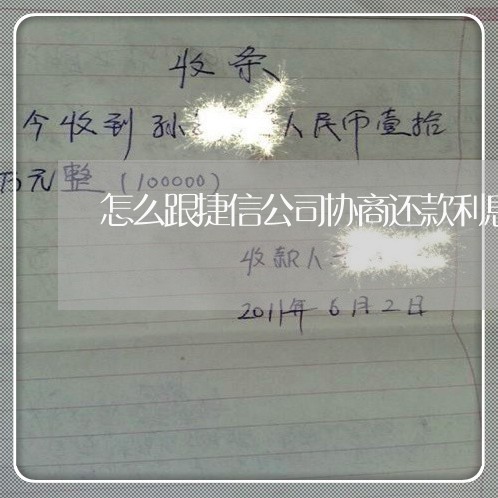 收条
今收到孙 人民币壹拾
万元整(100000)
怎么跟捷信公司协商还款利息
收款人
2011年6月2日